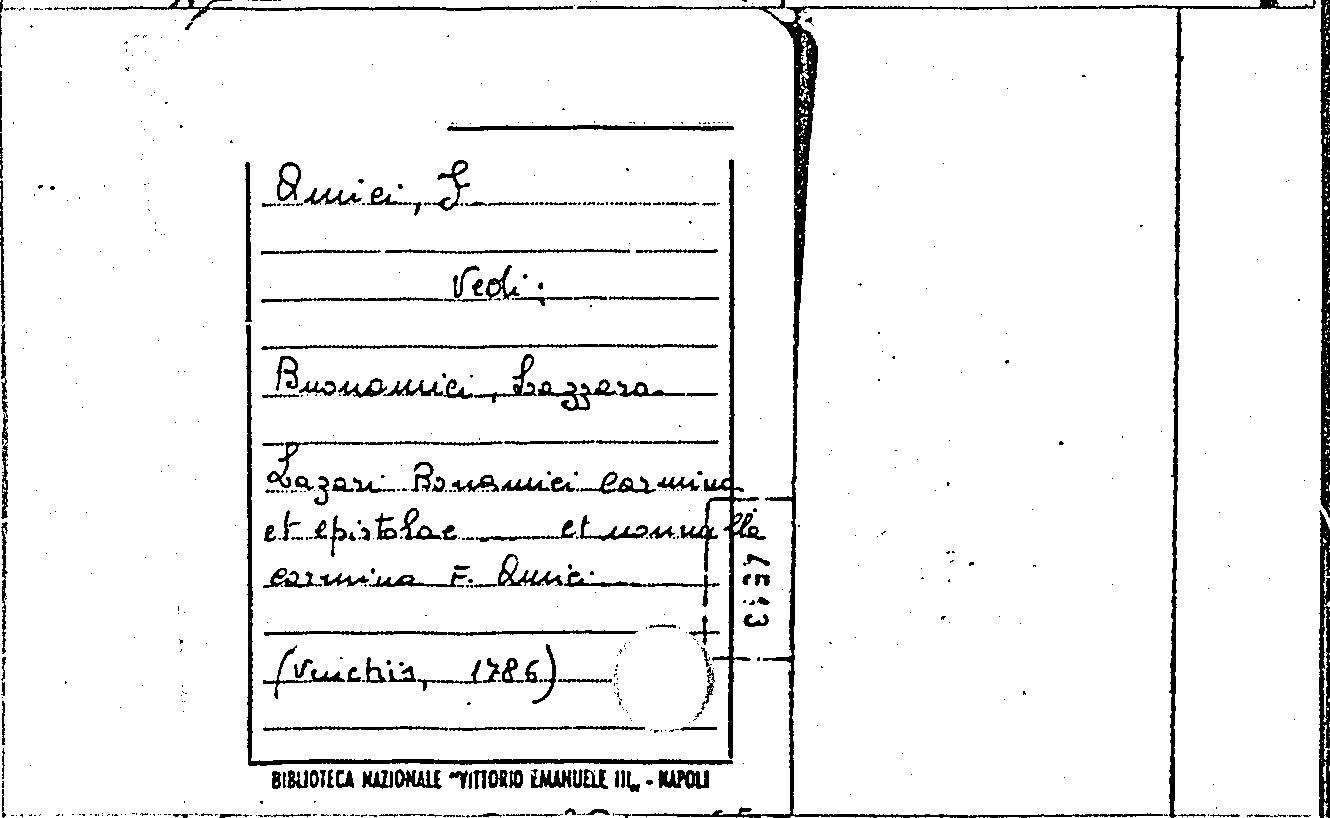 Amici, F
Vedi:
Buonamici, Lazzaro
Lazari Bonamici carmina
et epistolae __ et nonnulla
carmina F. Amici
(Venetiis, 1786)
BIBLIOTECA NAZIONALE "VITTORIO EMANUELE III" - NAPOLI